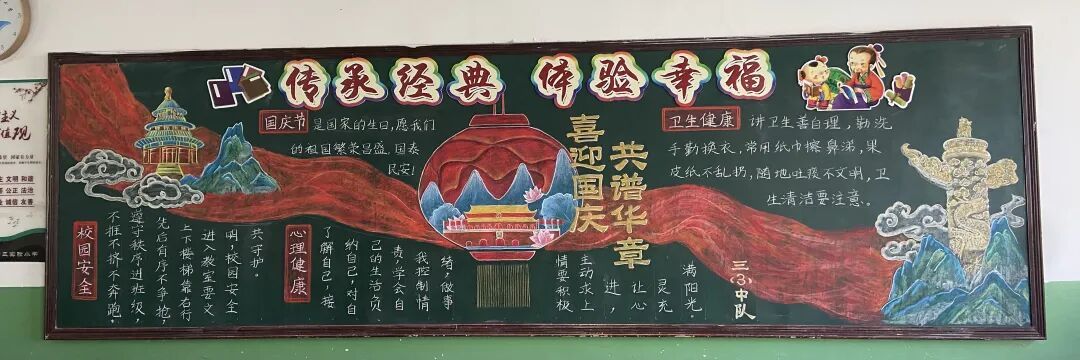 传承经典 体验幸福
国庆节 是国家的生日,愿我们
的祖国繁荣昌盛,国泰
民安!
喜迎国庆
共谱华章
卫生健康 讲卫生善自理,勤洗
手勤换衣,常用纸巾擦鼻涕,果
皮纸不乱扔,随地吐痰不文明,卫
生清洁要注意。
校园安全
不推不挤不奔跑,
遵守秩序进班级,
先后有序不争抢,
上下楼梯靠右行
进入教室要文
明,校园安全
共守护。
心理健康
了解自己,接
纳自己,对自
己的生活负
责,学会自
我控制情
绪,做事
情要积极
主动求上
进,
让心
灵充
满阳光。
三(3)中队
主义
值观
文明 和谐
公正 法治
诚信 友善